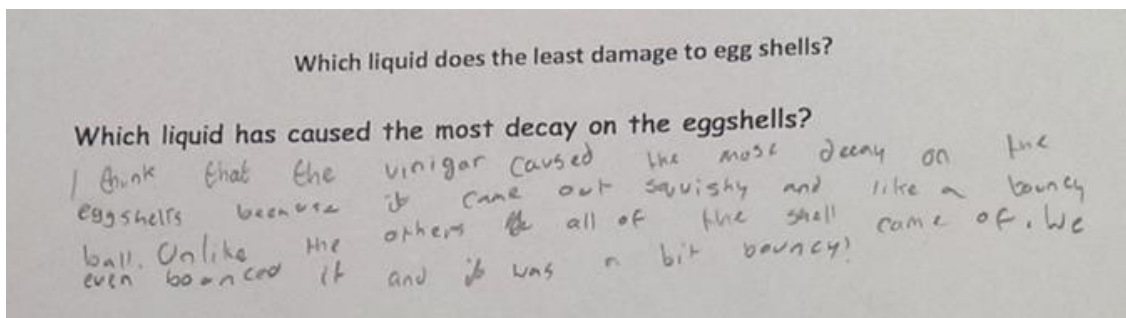 Which liquid does the least damage to egg shells?
Which liquid has caused the most decay on the eggshells?
I think that the vinigar caused the most decay on the
eggshells because it came out squishy and like a bouncy
ball. Unlike the others all of the shell came of. We
even boanced it and it was a bit bouncy!